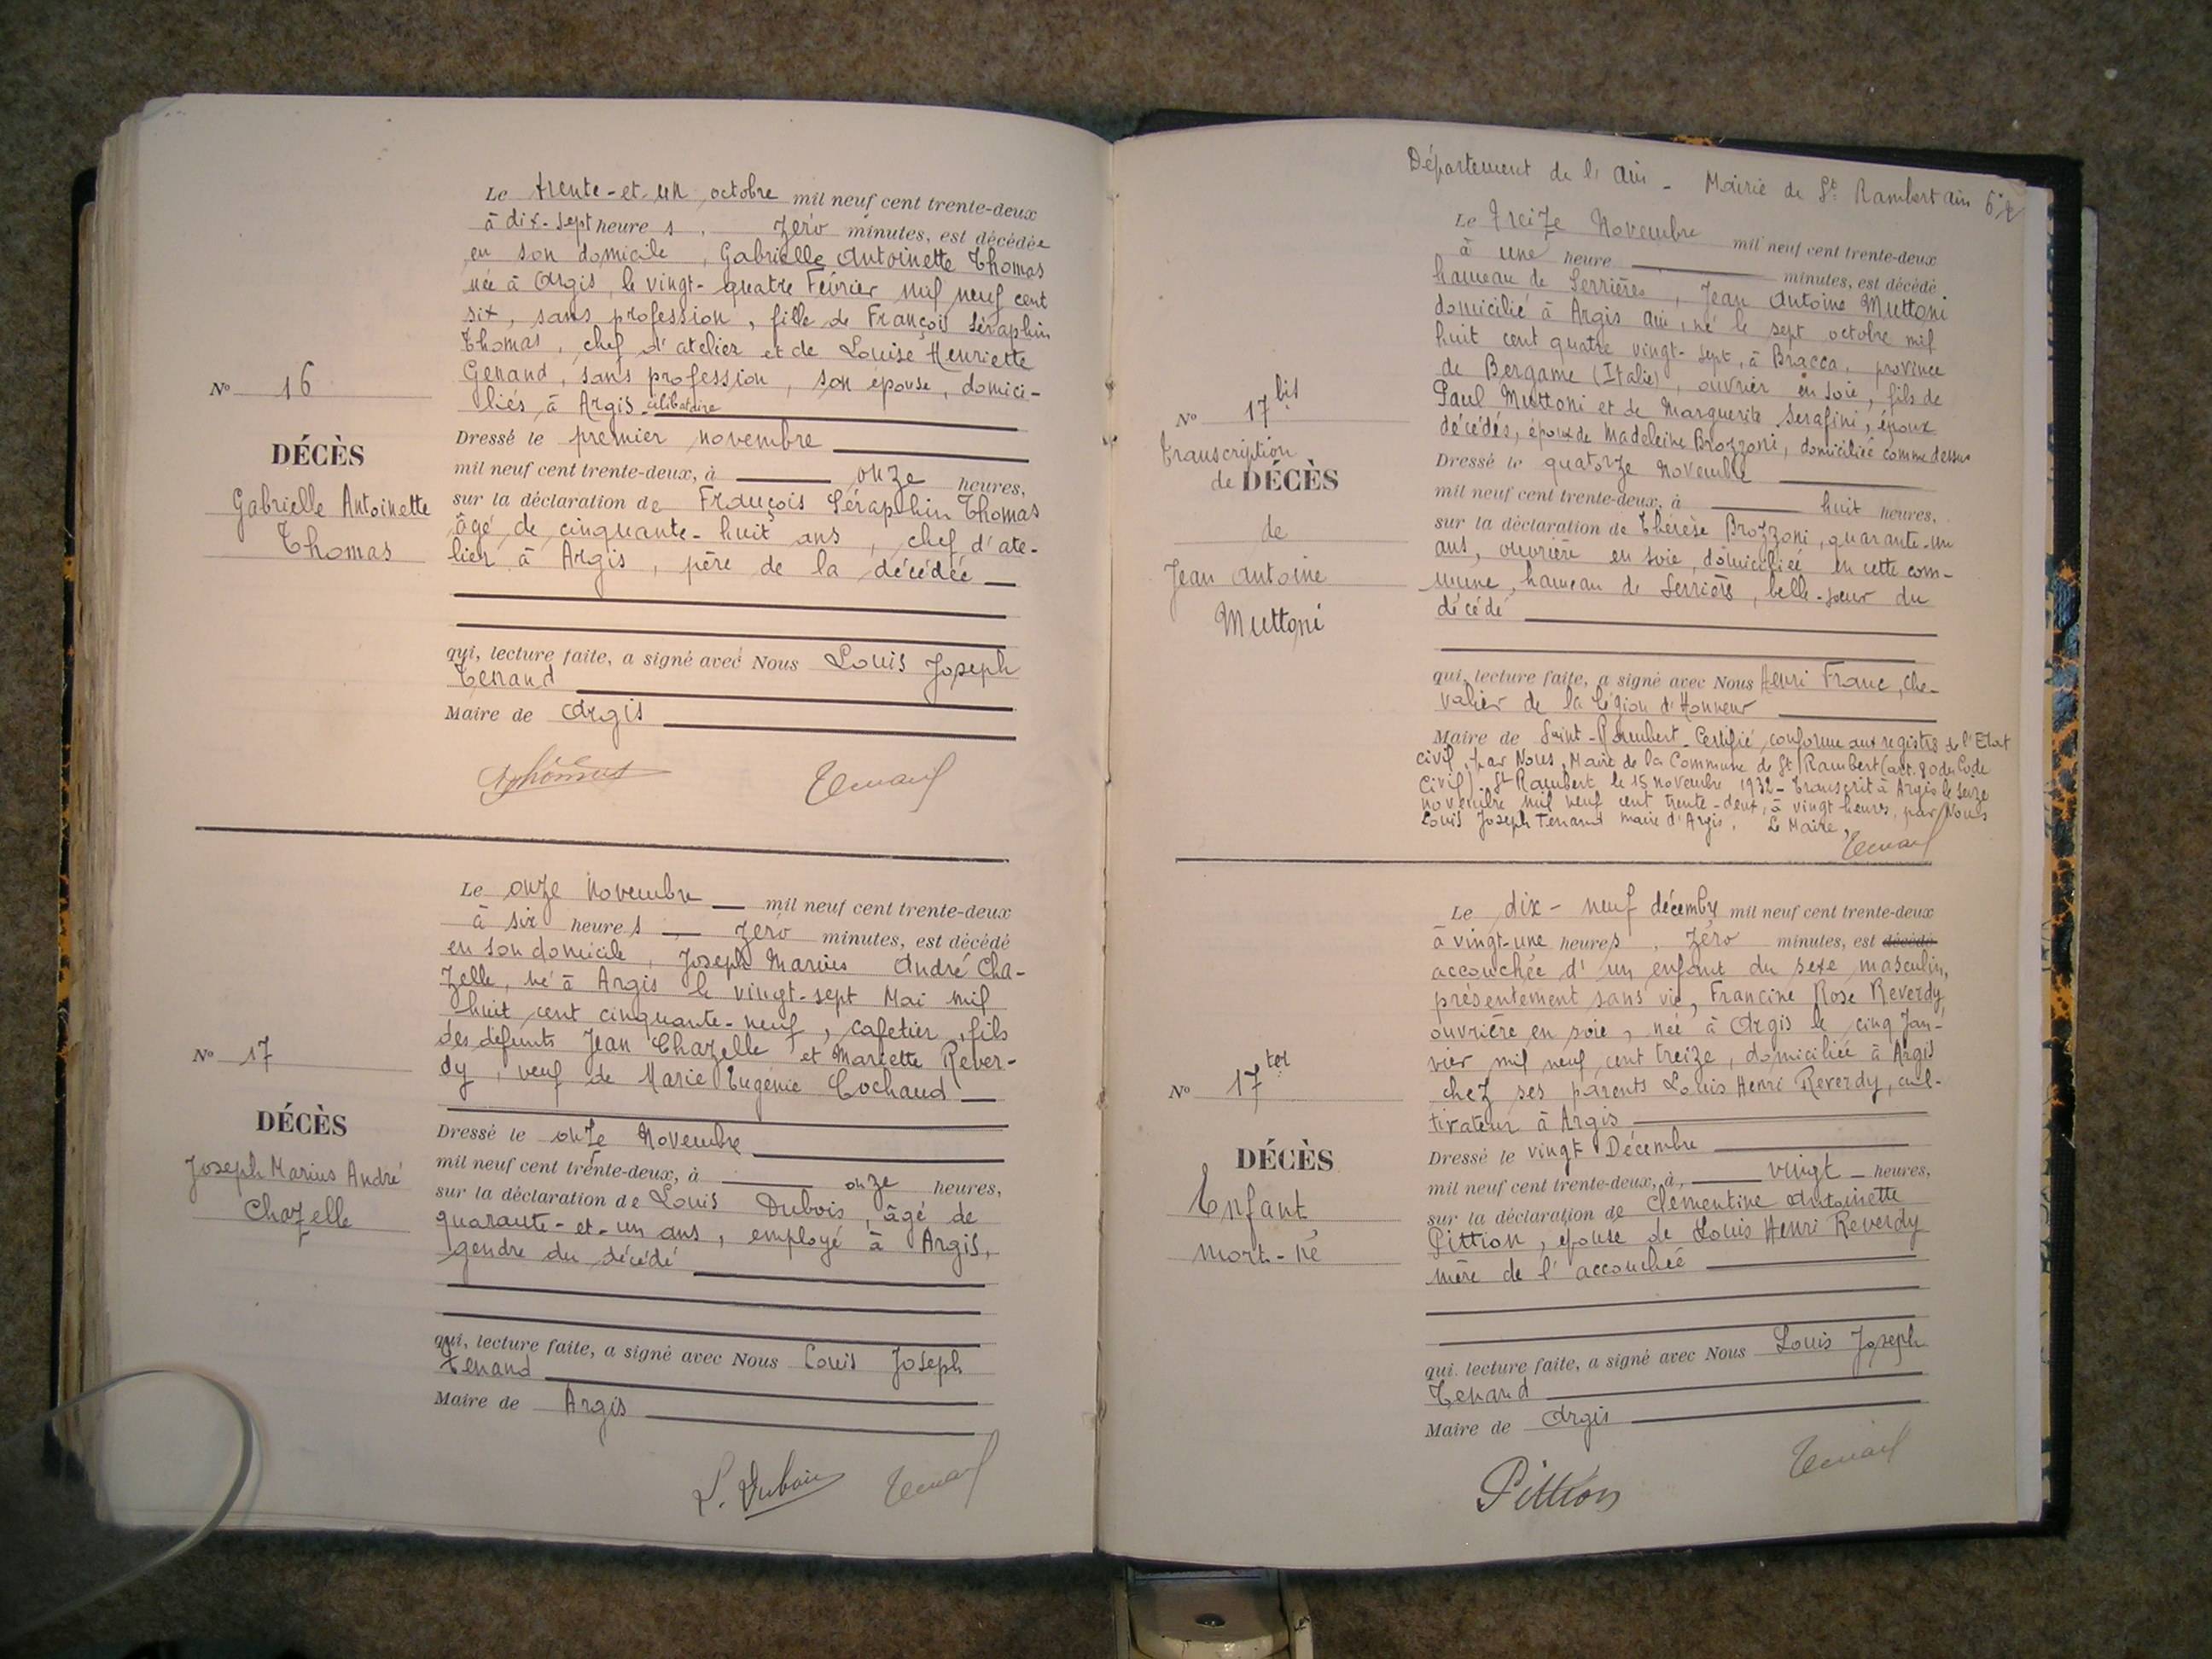 Le trente-et-un octobre mil neuf cent trente-deux
à dix-sept heures, zéro minutes, est décédée
en son domicile, Gabrielle Antoinette Thomas
née à Argis, le vingt-quatre Février mil neuf cent
six, sans profession, fille de François Séraphin
Thomas, chef d'atelier et de Louise Henriette
Genand, sans profession, son épouse, domici-
liés à Argis. célibataire
N° 16
DÉCÈS
Gabrielle Antoinette
Thomas
Dressé le premier novembre
mil neuf cent trente-deux, à onze heures,
sur la déclaration de François Séraphin Thomas
âgé de cinquante-huit ans, chef d'ate-
lier à Argis, père de la décédée
qui, lecture faite, a signé avec Nous Louis Joseph
Tenand
Maire de Argis
Tenand
Le onze Novembre mil neuf cent trente-deux
à six heures, zéro minutes, est décédé
en son domicile, Joseph Marius André Cha-
zelle, né à Argis le vingt-sept Mai mil
huit cent cinquante-neuf, cafetier, fils
des défunts Jean Chazelle et Mariette Rever-
dy, veuf de Marie Eugénie Cochaud
N° 17
DÉCÈS
Joseph Marius André
Chazelle
Dressé le onze Novembre
mil neuf cent trente-deux, à onze heures,
sur la déclaration de Louis Dubois, âgé de
quarante-et-un ans, employé à Argis,
gendre du décédé
qui, lecture faite, a signé avec Nous Louis Joseph
Tenand
Maire de Argis
L. Dubois Tenand
Département de l'Ain - Mairie de St Rambert Ain
Le treize Novembre mil neuf cent trente-deux
à une heure minutes, est décédé
hameau de Serrières, Jean Antoine Muttoni
domicilié à Argis Ain, né le sept octobre mil
huit cent quatre vingt-sept, à Bracca, province
de Bergame (Italie), ouvrier en soie, fils de
Paul Muttoni et de Marguerite Serafini, époux
décédés, époux de Madeleine Brozzoni, domiciliée comme dessus
N° 17 bis
Transcription
de DÉCÈS
de
Jean Antoine
Muttoni
Dressé le quatorze Novembre
mil neuf cent trente-deux, à huit heures,
sur la déclaration de Thérèse Brozzoni, quarante-un
ans, ouvrière en soie, domiciliée en cette com-
mune, hameau de Serrières, belle-sœur du
décédé
qui, lecture faite, a signé avec Nous Henri Franc, che-
valier de la Légion d'Honneur
Maire de Saint-Rambert. Certifié conforme aux registres de l'Etat
civil, par Nous, Maire de la Commune de St Rambert (art. 80 du Code
Civil). St Rambert le 15 novembre 1932 - Transcrit à Argis le seize
novembre mil neuf cent trente-deux, à vingt heures, par Nous
Louis Joseph Tenand maire d'Argis. Le Maire,
Tenand
Le dix-neuf décembre mil neuf cent trente-deux
à vingt-une heures, zéro minutes, est décédé
accouchée d'un enfant du sexe masculin,
présentement sans vie, Francine Rose Reverdy,
ouvrière en soie, née à Argis le cinq Jan-
vier mil neuf cent treize, domiciliée à Argis
chez ses parents Louis Henri Reverdy, cul-
tivateur à Argis
N° 17 ter
DÉCÈS
Enfant
mort-né
Dressé le vingt Décembre
mil neuf cent trente-deux, à vingt heures,
sur la déclaration de Clémentine Antoinette
Pittion, épouse de Louis Henri Reverdy
mère de l'accouchée
qui, lecture faite, a signé avec Nous Louis Joseph
Tenand
Maire de Argis
Pittion Tenand